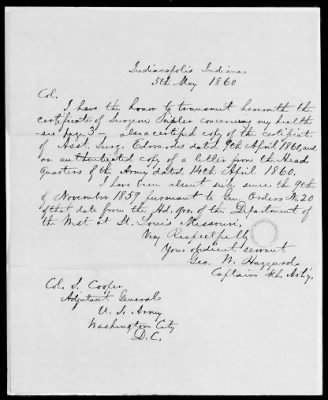 Indianapolis Indiana
5th May 1860
Col.
I have the honor to transmit herewith the
certificate of Surgeon Tripler concerning my health
- see page 3 - also a certified copy of the certificate
of Asst. Surg. Edwards dated 9th April 1860, and
an authenticated copy of a letter from the Head
quarters of the Army dated 14th April 1860.
I have been absent sick since the 9th
of November 1859 pursuant to Orders No. 20
of that date from the Hd. Qrs. of the Department of
the West at St. Louis Missouri.
Very Respectfully
Your obedient servant
Geo. W. Hazzard
Captain 4th Art'y.
Col. S. Cooper
Adjutant General
U. S. Army
Washington City
D.C.